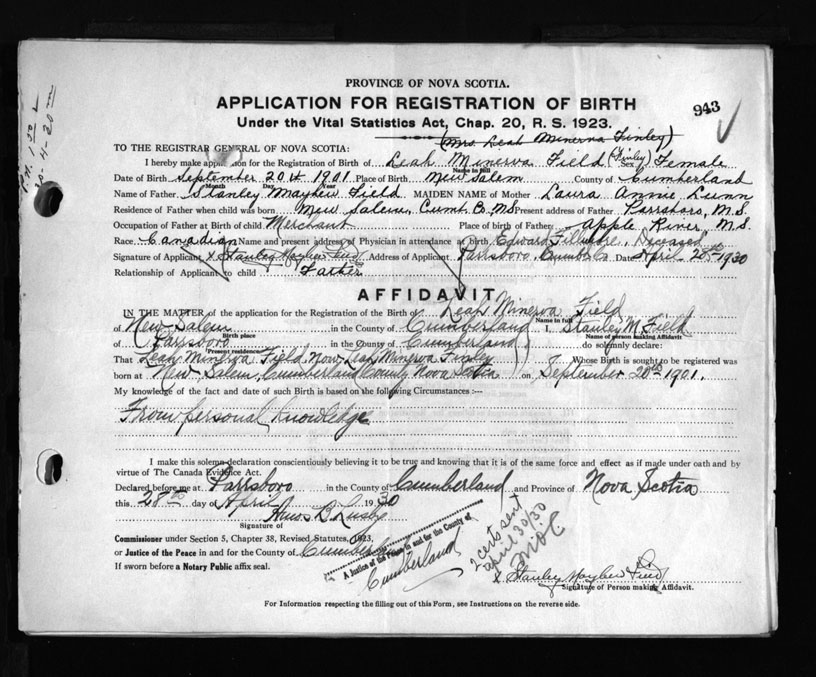 PROVINCE OF NOVA SCOTIA.
APPLICATION FOR REGISTRATION OF BIRTH
943
Under the Vital Statistics Act, Chap. 20, R. S. 1923.
(Mrs. Leah Minerva Finley)
TO THE REGISTRAR GENERAL OF NOVA SCOTIA:
I hereby make application for the Registration of Birth of Leah Minerva Field (Finley) Sex Female
Name in full
Date of Birth September 20th 1901 Place of Birth New Salem County of Cumberland
Month Day Year
Name of Father Stanley Mayhew Field MAIDEN NAME of Mother Laura Annie Lunn
Residence of Father when child was born New Salem, Cumb. Co. N.S. Present address of Father Parrsboro, N.S.
Occupation of Father at Birth of child Merchant Place of birth of Father Apple River, N.S.
Race Canadian Name and present address of Physician in attendance at birth Edward Fillmore, Deceased
Signature of Applicant X Stanley Mayhew Field Address of Applicant Parrsboro, Cumb. Co. Date April 28th 1930
Relationship of Applicant to child Father
AFFIDAVIT
IN THE MATTER of the application for the Registration of the Birth of Leah Minerva Field
Name in full
of New Salem in the County of Cumberland I, Stanley M. Field
Birth place Name of person making Affidavit
of Parrsboro in the County of Cumberland do solemnly declare:
Present residence
That Leah Minerva Field Now Leah Minerva Finley Whose Birth is sought to be registered was
born at New Salem, Cumberland County Nova Scotia on September 20th 1901.
My knowledge of the fact and date of such Birth is based on the following Circumstances :—
From personal knowledge
I make this solemn declaration conscientiously believing it to be true and knowing that it is of the same force and effect as if made under oath and by
virtue of The Canada Evidence Act.
Declared before me at Parrsboro in the County of Cumberland and Province of Nova Scotia
this 28th day of April 1930
Amos B. Lusby
Signature of
Commissioner under Section 5, Chapter 38, Revised Statutes, 1923,
or Justice of the Peace in and for the County of Cumberland
If sworn before a Notary Public affix seal.
A Justice of the Peace in and for the County of
Cumberland
2 certs sent
april 30/30
X Stanley Mayhew Field
Signature of Person making Affidavit.
For Information respecting the filling out of this Form, see Instructions on the reverse side.